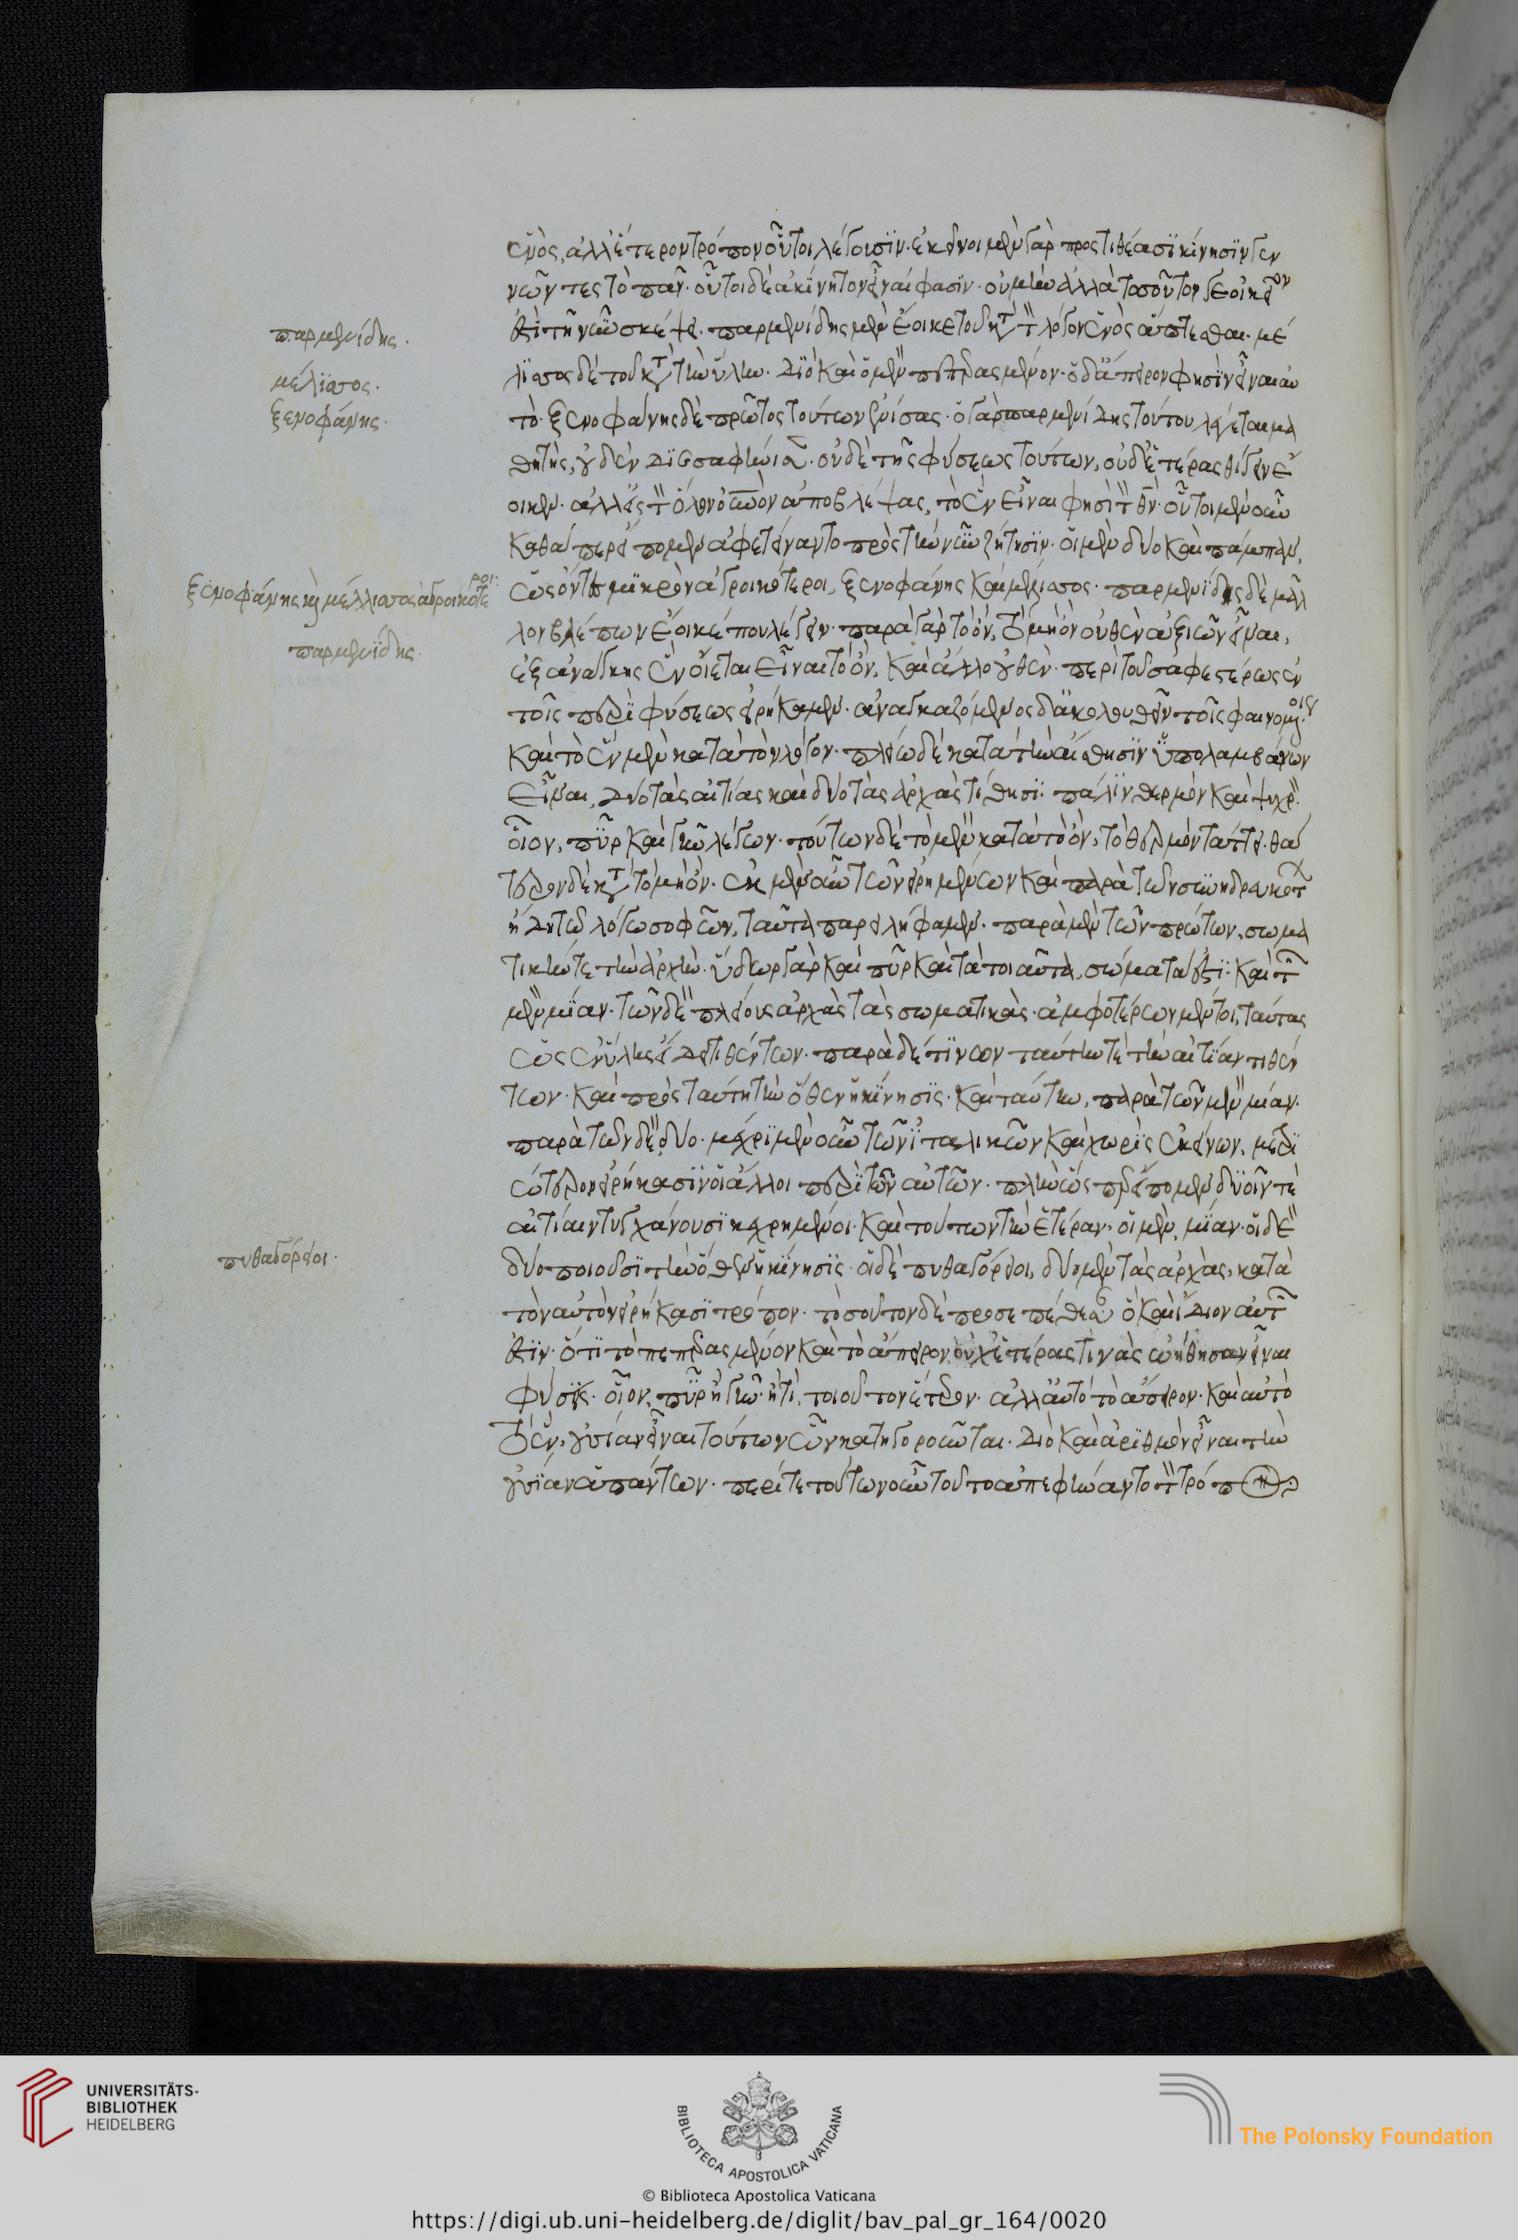 παρμενίδης.
μέλισσος.
ξενοφάνης.
ξενοφάνης καὶ μέλλισσος ἀγροικότεροι:
παρμενίδης.
πυθαγόρειοι.
ἑνὸς, ἀλλ' ἕτερον τρόπον οὗτοι λέγουσϊν. ἐκεῖνοι μὲν γὰρ προστιθέασϊ κίνησϊν γεν
νῶντες τὸ πᾶν. οὗτοι δὲ ἀκίνητον εἶναί φασϊν. οὐ μὴν ἀλλὰ τοσοῦτον γε οἰκεῖον
ἐστὶ τῆ νῦν σκέψει. παρμενίδης μὲν ἔοικε τοῦ κατὰ τὸν λόγον ἑνὸς ἅπτεσθαι. μέ
λϊσσος δὲ τοῦ κατὰ τὴν ὕλην. διὸ καὶ ὁ μὲν πεπερασμένον. ὁ δ' ἄπειρον φησϊν εἶναι αὐ
τὸ. ξενοφάνης δὲ πρῶτος τούτων ἑνίσας. ὁ γὰρ παρμενίδης τούτου λέγεται μα
θητὴς, οὐδὲν διεσαφήνισεν. οὐδὲ τῆς φύσεως τούτων, οὐδετέρας θιγεῖν ἔ
οικεν. ἀλλ' εἰς τὸν ὅλον οὐρανὸν ἀποβλέψας, τὸ ἓν εἶναι φησὶ τὸν θεόν. οὗτοι μὲν οὖν
καθάπερ εἴπομεν ἀφετέοι πρὸς τὴν νῦν ζήτησϊν. οἱ μὲν δύο καὶ πάμπαν,
ὡς ὄντες μϊκρὸν ἀγροικότεροι, ξενοφάνης καὶ μέλισσος. παρμενίδης δὲ μᾶλ
λον βλέπων ἔοικέ που λέγειν. παρὰ γὰρ τὸ ὄν, τὸ μὴ ὂν οὐθὲν ἀξιῶν εἶναι,
ἐξ ἀνάγκης ἓν οἴεται εἶναι τὸ ὄν, καὶ ἄλλο οὐθέν. περὶ τοῦ σαφεστέρως ἐν
τοῖς περὶ φύσεως εἰρήκαμεν. ἀναγκαζόμενος δ' ἀκολουθεῖν τοῖς φαινομένοις
καὶ τὸ ἓν μὲν κατὰ τὸν λόγον. πλείω δὲ κατὰ τὴν αἴσθησϊν ὑπολαμβάνων
εἶναι, δύο τὰς αἰτίας καὶ δύο τὰς ἀρχὰς τίθησϊ. πάλϊν θερμὸν καὶ ψυχρόν.
οἷον, πῦρ καὶ γῆν λέγων. τούτων δὲ τὸ μὲν κατὰ τὸ ὂν, τὸ θερμὸν τάττει. θά
τερον δὲ κατὰ τὸ μὴ ὄν. ἐκ μὲν οὖν τῶν εἰρημένων καὶ παρὰ τῶν συνηδρευκότων
ἤδη τῶ λόγω σοφῶν, ταῦτα παρειλήφαμεν. παρὰ μὲν τῶν πρώτων, σωμα
τικήν τε τὴν ἀρχὴν. ὕδωρ γὰρ καὶ πῦρ καὶ τὰ τοιαῦτα, σώματά ἐστϊ: καὶ τῶν
μὲν μίαν. τῶν δὲ πλείους ἀρχὰς τὰς σωματικὰς. ἀμφοτέρων μέντοι, ταύτας
ὡς ἐν ὕλης εἴδει τιθέντων. παρὰ δέ τϊνων ταύτην τὲ τὴν αἰτίαν τιθέν
των. καὶ πρὸς ταύτη τὴν ὅθεν ἡ κίνησϊς. καὶ ταύτην, παρὰ τῶν μὲν μίαν.
παρὰ τῶν δὲ, δύο. μέχρϊ μὲν οὖν τῶν ἰταλικῶν καὶ χωρὶς ἐκείνων, μετρϊ
ώτερον εἰρήκασϊν οἱ ἄλλοι περὶ τῶν αὐτῶν. πλὴν ὥς περ εἴπομεν δυοῖν τὲ
αἰτίαιν τυγχάνουσϊ κεχρημένοι. καὶ τούτων τὴν ἑτέραν. οἱ μὲν, μίαν. οἱ δὲ
δύο ποιοῦσϊ τὴν ὅθεν ἡ κίνησϊς. οἱ δὲ πυθαγόρειοι, δύο μὲν τὰς ἀρχὰς, κατὰ
τὸν αὐτὸν εἰρήκασϊ τρόπον. τὸσοῦτον δὲ προσεπέθεσαν ὃ καὶ ἴδιον αὐτῶν
ἐστϊν. ὅτϊ τὸ πεπερασμένον καὶ τὸ ἄπειρον, οὐχ' ἑτέρας τϊνὰς ὠήθησαν εἶναι
φύσεις. οἷον, πῦρ ἢ γῆν. ἤ τι, τοιοῦτον ἕτερον. ἀλλ' αὐτὸ τὸ ἄπειρον. καὶ αὐτὸ
τὸ ἓν, οὐσίαν εἶναι τούτων ὧν κατηγοροῦνται. διὸ καὶ ἀρϊθμὸν εἶναι τὴν
οὐσίαν ἁπάντων. περί τε τούτων οὖν τοῦτο ἀπεφήναντο τὸν τρόπον